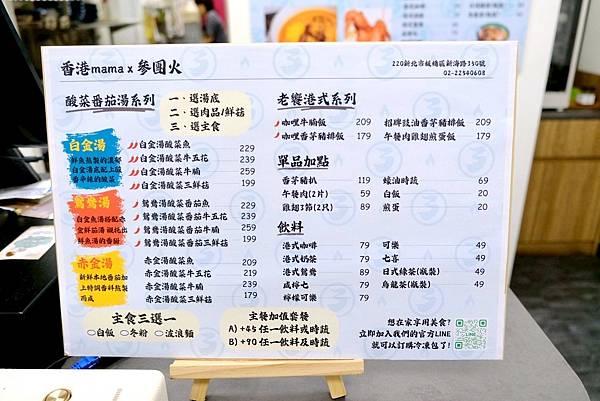 香港mama x 參團火
220新北市板橋區新海路350號
02-22540608
酸菜番茄湯系列
一、選湯底
二、選肉品/鮮菇
三、選主食
白金湯
鮮魚熬製的濃郁
白金湯底配上酸
香辛辣的酸菜
白金湯酸菜魚 229
白金湯酸菜牛五花 239
白金湯酸菜牛腩 259
白金湯酸菜三鮮菇 199
鴛鴦湯
白金魚湯搭配赤
金鮮茄湯 襯托出
鮮魚湯的香甜
鴛鴦湯酸菜番茄魚 229
鴛鴦湯酸菜番茄牛五花 239
鴛鴦湯酸菜番茄牛腩 259
鴛鴦湯酸菜番茄三鮮菇 199
赤金湯
新鮮本地番茄加
上特調香料熬製
而成
赤金湯酸菜魚 209
赤金湯酸菜牛五花 219
赤金湯酸菜牛腩 239
赤金湯酸菜三鮮菇 179
主食三選一
○白飯 ○冬粉 ○波浪麵
主餐加值套餐
A) +45 任一飲料或時蔬
B) +90 任一飲料及時蔬
老饗港式系列
咖哩牛腩飯 209
咖哩香茅豬排飯 179
招牌豉油香茅豬排飯 209
午餐肉雞翅煎蛋飯 179
單品加點
香茅豬扒 119
午餐肉(2片) 59
雞翅3節(2只) 89
蠔油時蔬 69
白飯 20
煎蛋 20
飲料
港式咖啡 79
港式奶茶 79
港式鴛鴦 89
咸檸七 79
檸檬可樂 79
可樂 49
七喜 49
日式綠茶(瓶裝) 49
烏龍茶(瓶裝) 49
想在家享用美食?
立即加入我們的官方LINE
就可以訂購冷凍包了!